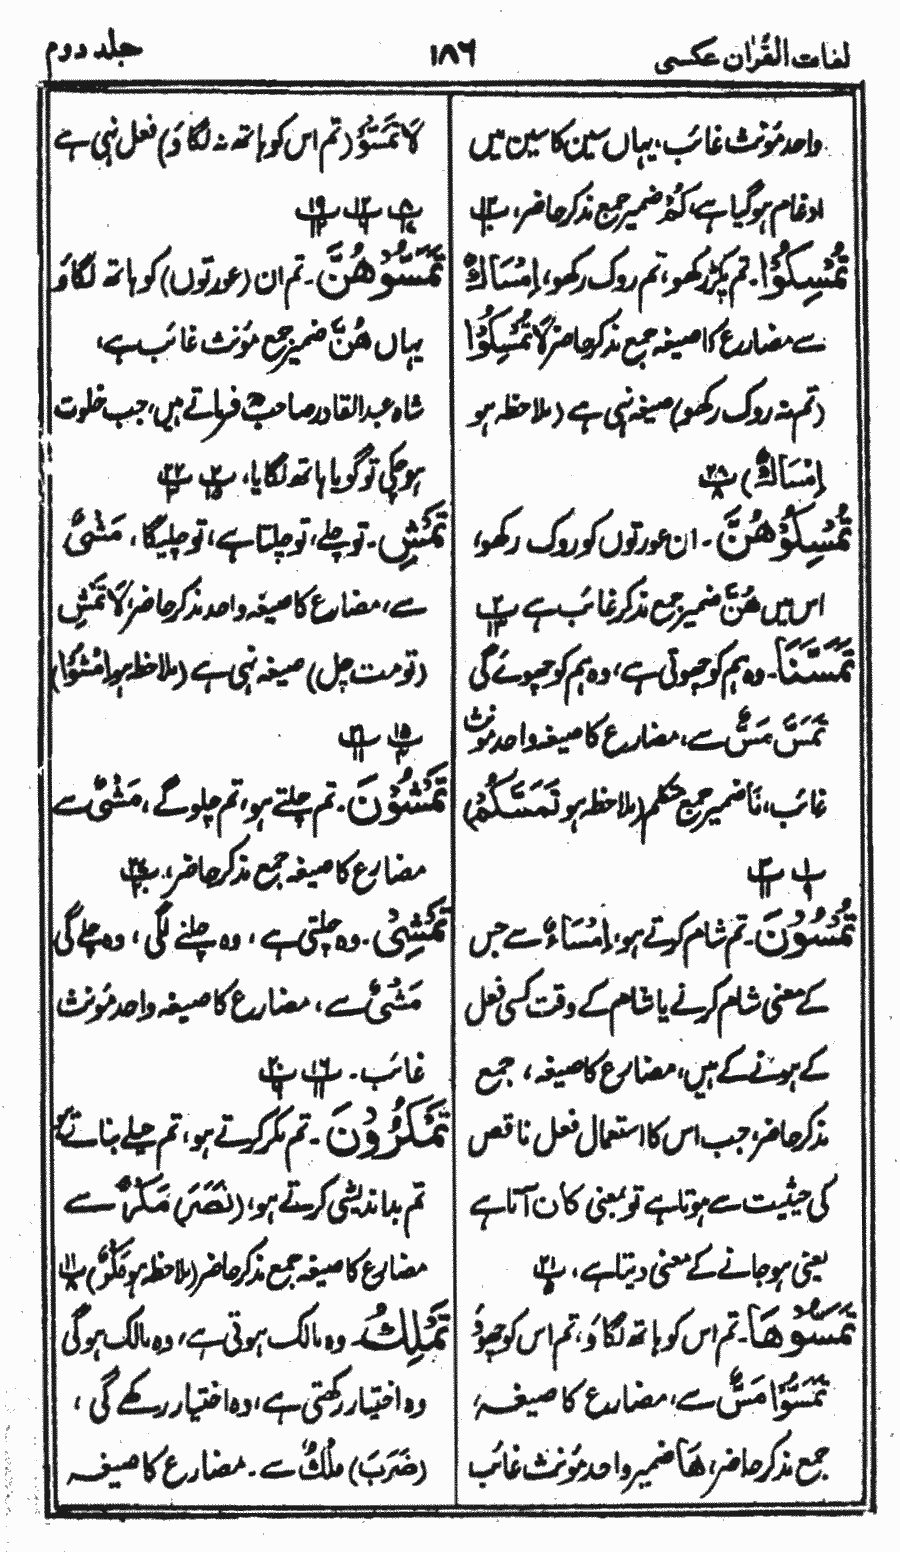 لغات القرآن عکسی
۱۸۶
جلد دوم
واحد مؤنث غائب، یہاں سین کا سین میں
ادغام ہو گیا ہے، کُمْ ضمیر جمع مذکر حاضر، پ
تُمْسِکُوْا۔ تم پکڑ رکھو، تم روک رکھو، اِمْسَاکٌ
سے مضارع کا صیغہ جمع مذکر حاضر لَا تُمْسِکُوْا
(تم نہ روک رکھو) صیغہ نہی ہے (ملاحظہ ہو
اِمْسَاکٌ) پ ۲۸ / ۸
تُمْسِکُوْهُنَّ۔ ان عورتوں کو روک رکھو،
اس میں هُنَّ ضمیر جمع مذکر غائب ہے پ ۲ / ۱۳
تَمَسَّنَا۔ وہ ہم کو چھوتی ہے، وہ ہم کو چھوئے گی
تَمَسَّ مَسٌّ سے، مضارع کا صیغہ واحد مونث
غائب، نَا ضمیر جمع متکلم (ملاحظہ ہو تَمَسَّکُمْ)
پ ۱ / ۹ پ ۳ / ۱۱
تُمْسُوْنَ۔ تم شام کرتے ہو، اِمْسَاءٌ سے جس
کے معنی شام کرنے یا شام کے وقت کسی فعل
کے ہونے کے ہیں، مضارع کا صیغہ، جمع
مذکر حاضر، جب اس کا استعمال فعل ناقص
کی حیثیت سے ہوتا ہے تو بمعنی کان آتا ہے
یعنی ہو جانے کے معنی دیتا ہے، پ ۲۱ / ۵
تَمَسُّوْهَا۔ تم اس کو ہاتھ لگاؤ، تم اس کو چھوؤ
تَمَسُّوْا مَسٌّ سے، مضارع کا صیغہ،
جمع مذکر حاضر، هَا ضمیر واحد مؤنث غائب
لَا تَمَسُّوْا (تم اس کو ہاتھ نہ لگاؤ) فعل نہی ہے
پ ۸ / ۱۷ پ ۱۲ / ۶ پ ۱۹ / ۱۲
تَمَسُّوْهُنَّ۔ تم ان (عورتوں) کو ہاتھ لگاؤ
یہاں هُنَّ ضمیر جمع مؤنث غائب ہے،
شاہ عبدالقادر صاحبؒ فرماتے ہیں، جب خلوت
ہو چکی تو گویا ہاتھ لگایا، پ ۲ / ۱۵ پ ۲۲ / ۳
تَمْشِ۔ تو چلے، تو چلتا ہے، تو چلیگا، مَشْیٌ
سے، مضارع کا صیغہ واحد مذکر حاضر، لَا تَمْشِ
(تو مت چل) صیغہ نہی ہے (ملاحظہ ہو اِمْشُوْا)
پ ۱۵ / ۴ پ ۲۱ / ۱۱
تَمْشُوْنَ۔ تم چلتے ہو، تم چلو گے، مَشْیٌ سے
مضارع کا صیغہ جمع مذکر حاضر، پ ۲۷ / ۲۰
تَمْشِیْ۔ وہ چلتی ہے، وہ چلنے لگی، وہ چلے گی
مَشْیٌ سے، مضارع کا صیغہ واحد مؤنث
غائب۔ پ ۱۶ / ۱۱ پ ۲۰ / ۶
تَمْکُرُوْنَ۔ تم مکر کرتے ہو، تم حیلے بناتے ہو
تم بداندیشی کرتے ہو، (نَصَرَ) مَکْرٌ سے
مضارع کا صیغہ جمع مذکر حاضر (ملاحظہ ہو مَکْرٌ) پ ۱۱ / ۸
تَمْلِکُ۔ وہ مالک ہوتی ہے، وہ مالک ہو گی
وہ اختیار رکھتی ہے، وہ اختیار رکھے گی،
(ضَرَبَ) مُلْکٌ سے۔ مضارع کا صیغہ